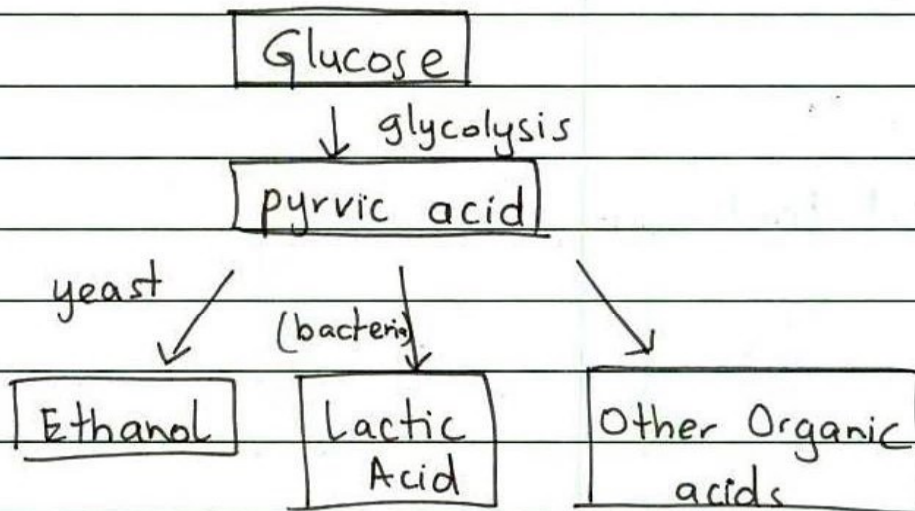 Glucose
glycolysis
pyrvic acid
yeast
(bacteria)
Ethanol
Lactic
Acid
Other Organic
acids